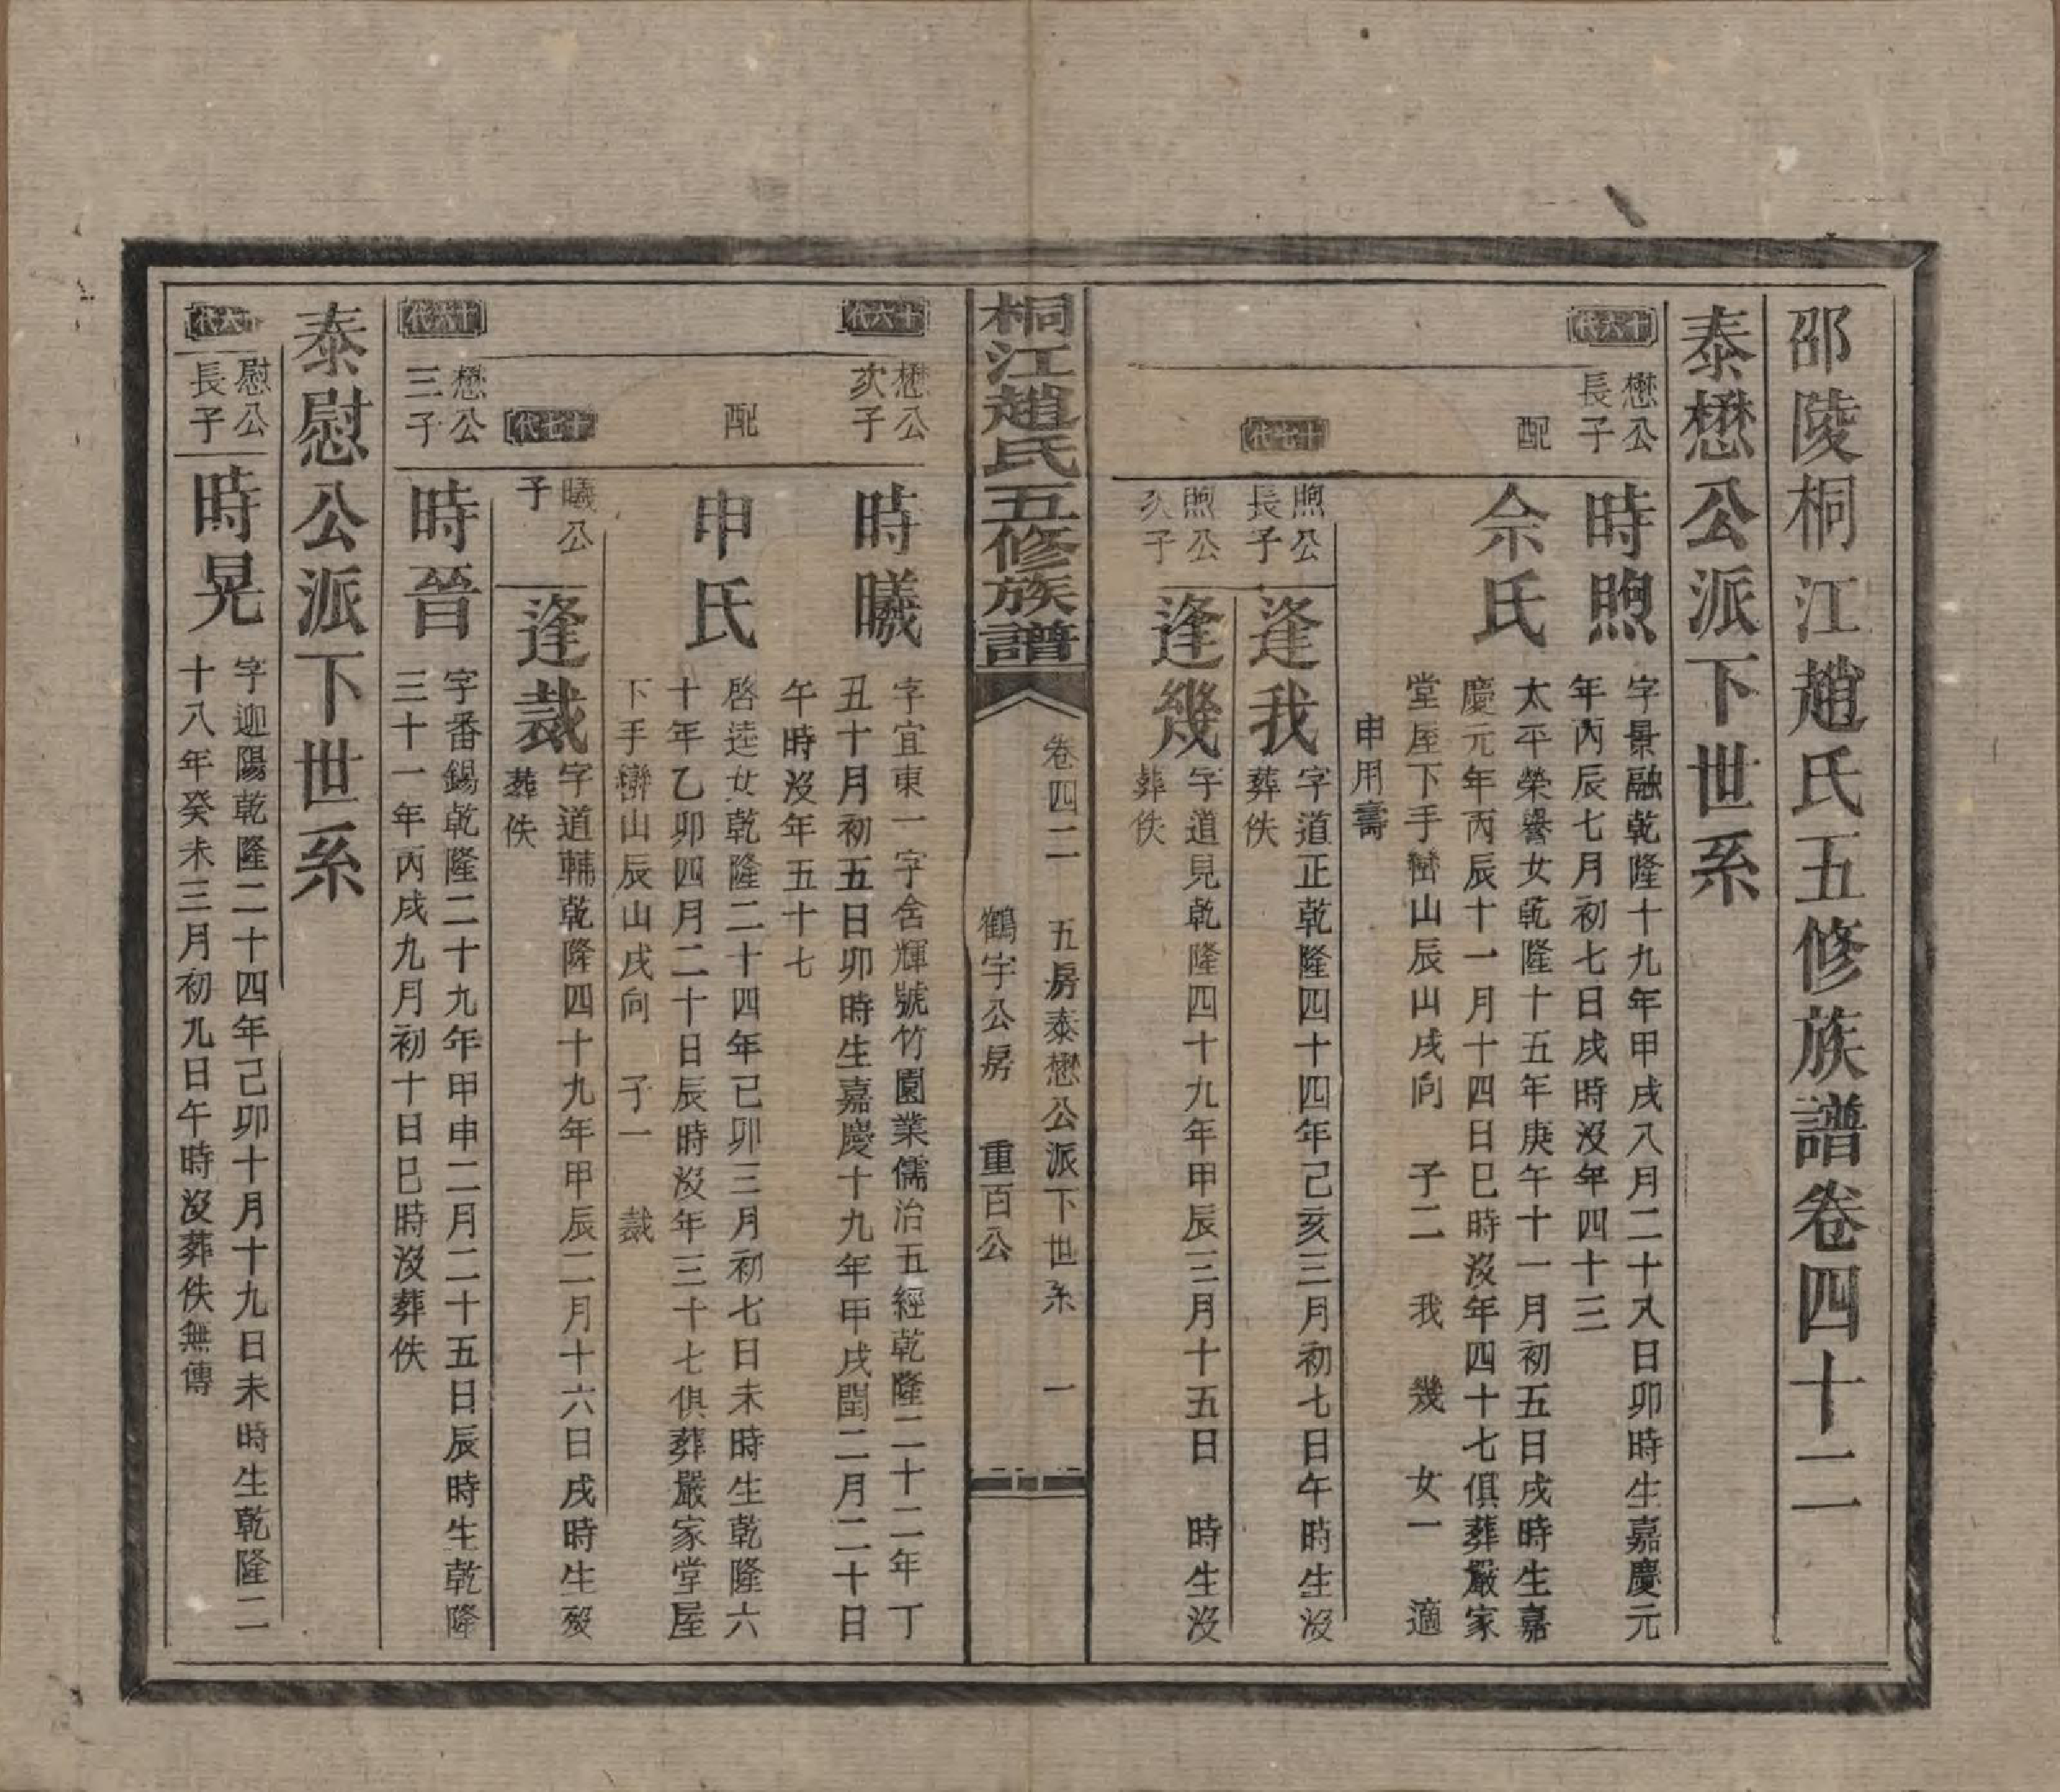 邵陵桐江趙氏五修族譜卷四十二
泰懋公派下世系
十六代
懋公
長子
時煦
字景融乾隆十九年甲戌八月二十八日卯時生嘉慶元
年丙辰七月初七日戌時沒年四十三
配
佘氏
太平榮譽女乾隆十五年庚午十一月初五日戌時生嘉
慶元年丙辰十一月十四日巳時沒年四十七俱葬嚴家
堂屋下手巒山辰山戌向 子二 我 幾 女一 適
申用壽
十七代
煦公
長子
逢我
字道正乾隆四十四年己亥三月初七日午時生沒
葬佚
煦公
次子
逢幾
字道見乾隆四十九年甲辰三月十五日 時生沒
葬佚
桐江趙氏五修族譜
卷四二 五房泰懋公派下世系 一
鶴字公房 重百公
十六代
懋公
次子
時曦
字宜東一字含輝號竹園業儒治五經乾隆二十二年丁
丑十月初五日卯時生嘉慶十九年甲戌閏二月二十日
午時沒年五十七
配
申氏
啓逵女乾隆二十四年己卯三月初七日未時生乾隆六
十年乙卯四月二十日辰時沒年三十七俱葬嚴家堂屋
下手巒山辰山戌向 子一 裁
十七代
曦公
子
逢裁
字道輔乾隆四十九年甲辰二月十六日戌時生歿
葬佚
十六代
懋公
三子
時晉
字番錫乾隆二十九年甲申二月二十五日辰時生乾隆
三十一年丙戌九月初十日巳時沒葬佚
泰慰公派下世系
十六代
慰公
長子
時晃
字迎陽乾隆二十四年己卯十月十九日未時生乾隆二
十八年癸未三月初九日午時沒葬佚無傳